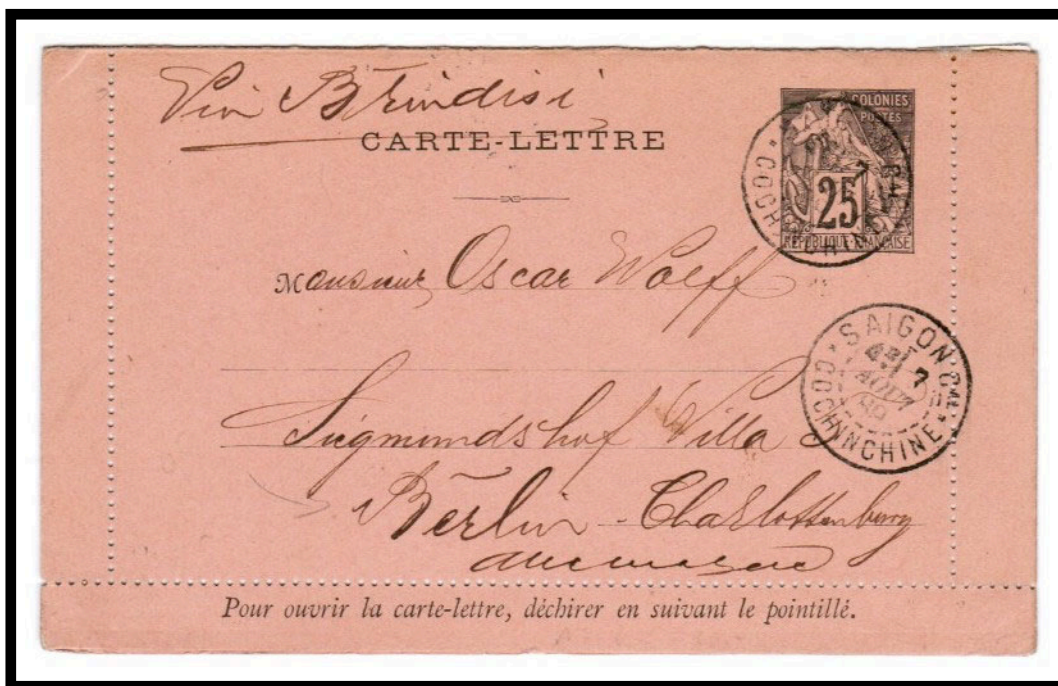 Via Brindisi
CARTE-LETTRE
COLONIES
POSTES
25
RÉPUBLIQUE FRANÇAISE
COCHINCHINE
Monsieur Oscar Wolff
SAIGON
7
AOUT
89
COCHINCHINE
Siegmundshof Villa
Berlin-Charlottenburg
Allemagne
Pour ouvrir la carte-lettre, déchirer en suivant le pointillé.